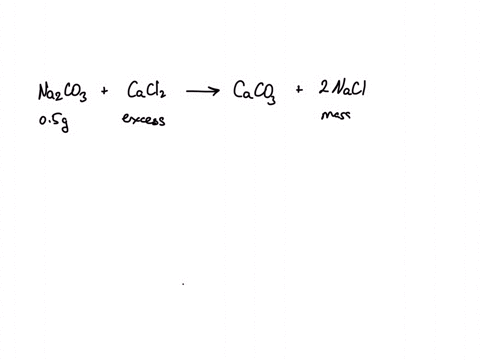 Na₂CO₃ + CaCl₂ → CaCO₃ + 2NaCl
0.5g excess mass